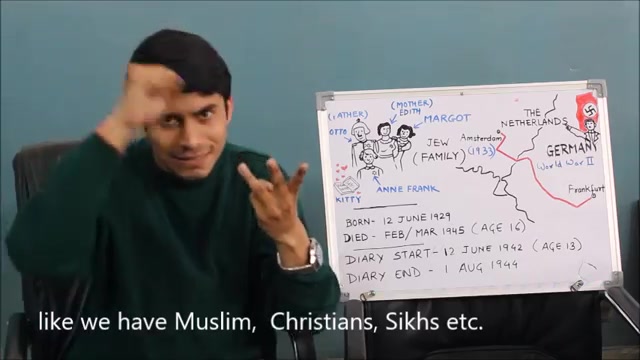 (FATHER)
OTTO
(MOTHER)
EDITH
MARGOT
JEW
(FAMILY)
KITTY
ANNE FRANK
THE
NETHERLANDS
Amsterdam
(1933)
GERMANY
World War II
Frankfurt
BORN- 12 JUNE 1929
DIED - FEB/MAR 1945 (AGE 16)
DIARY START- 12 JUNE 1942 (AGE 13)
DIARY END - 1 AUG 1944
like we have Muslim, Christians, Sikhs etc.